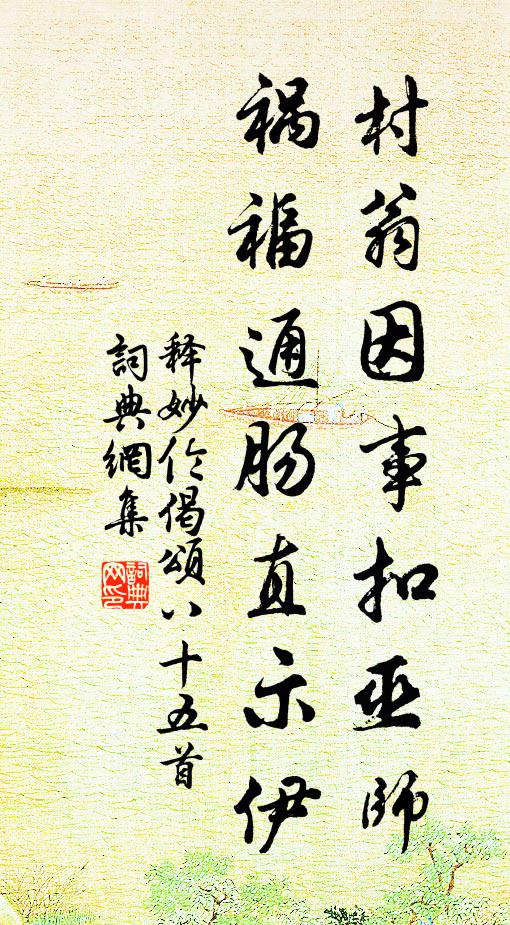 村翁因事扣巫師
禍福通腸直示伊
釋妙伦偈頌八十五首
詞典網集
詞典网印